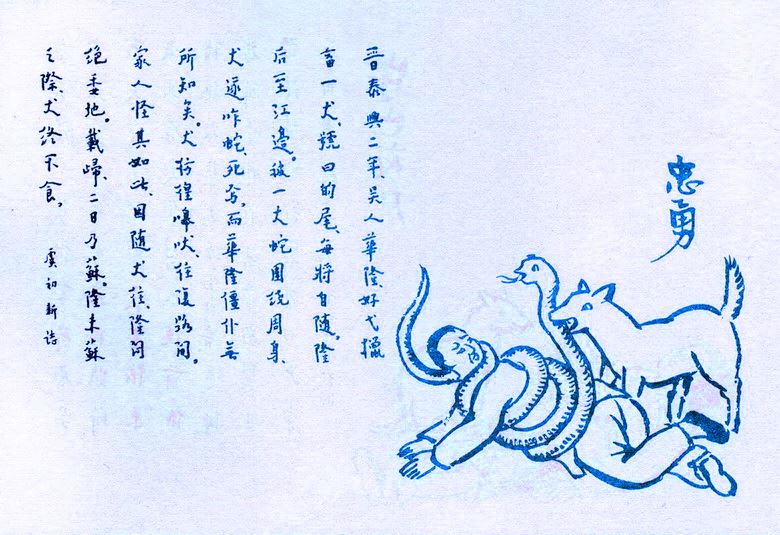 忠勇
晋泰興二年、吴人華隆、好弋獵
畜一犬、號曰的尾、每將自隨。隆
后至江邊。被一大蛇圍繞周身、
犬遂咋蛇、死焉、而華隆僵仆無
所知矣。犬彷徨嗥吠、往復路間。
家人怪其如此、因随犬往、隆悶
絕委地。載歸、二日乃蘇。隆未蘇
之際、犬終不食。
虞初新誌